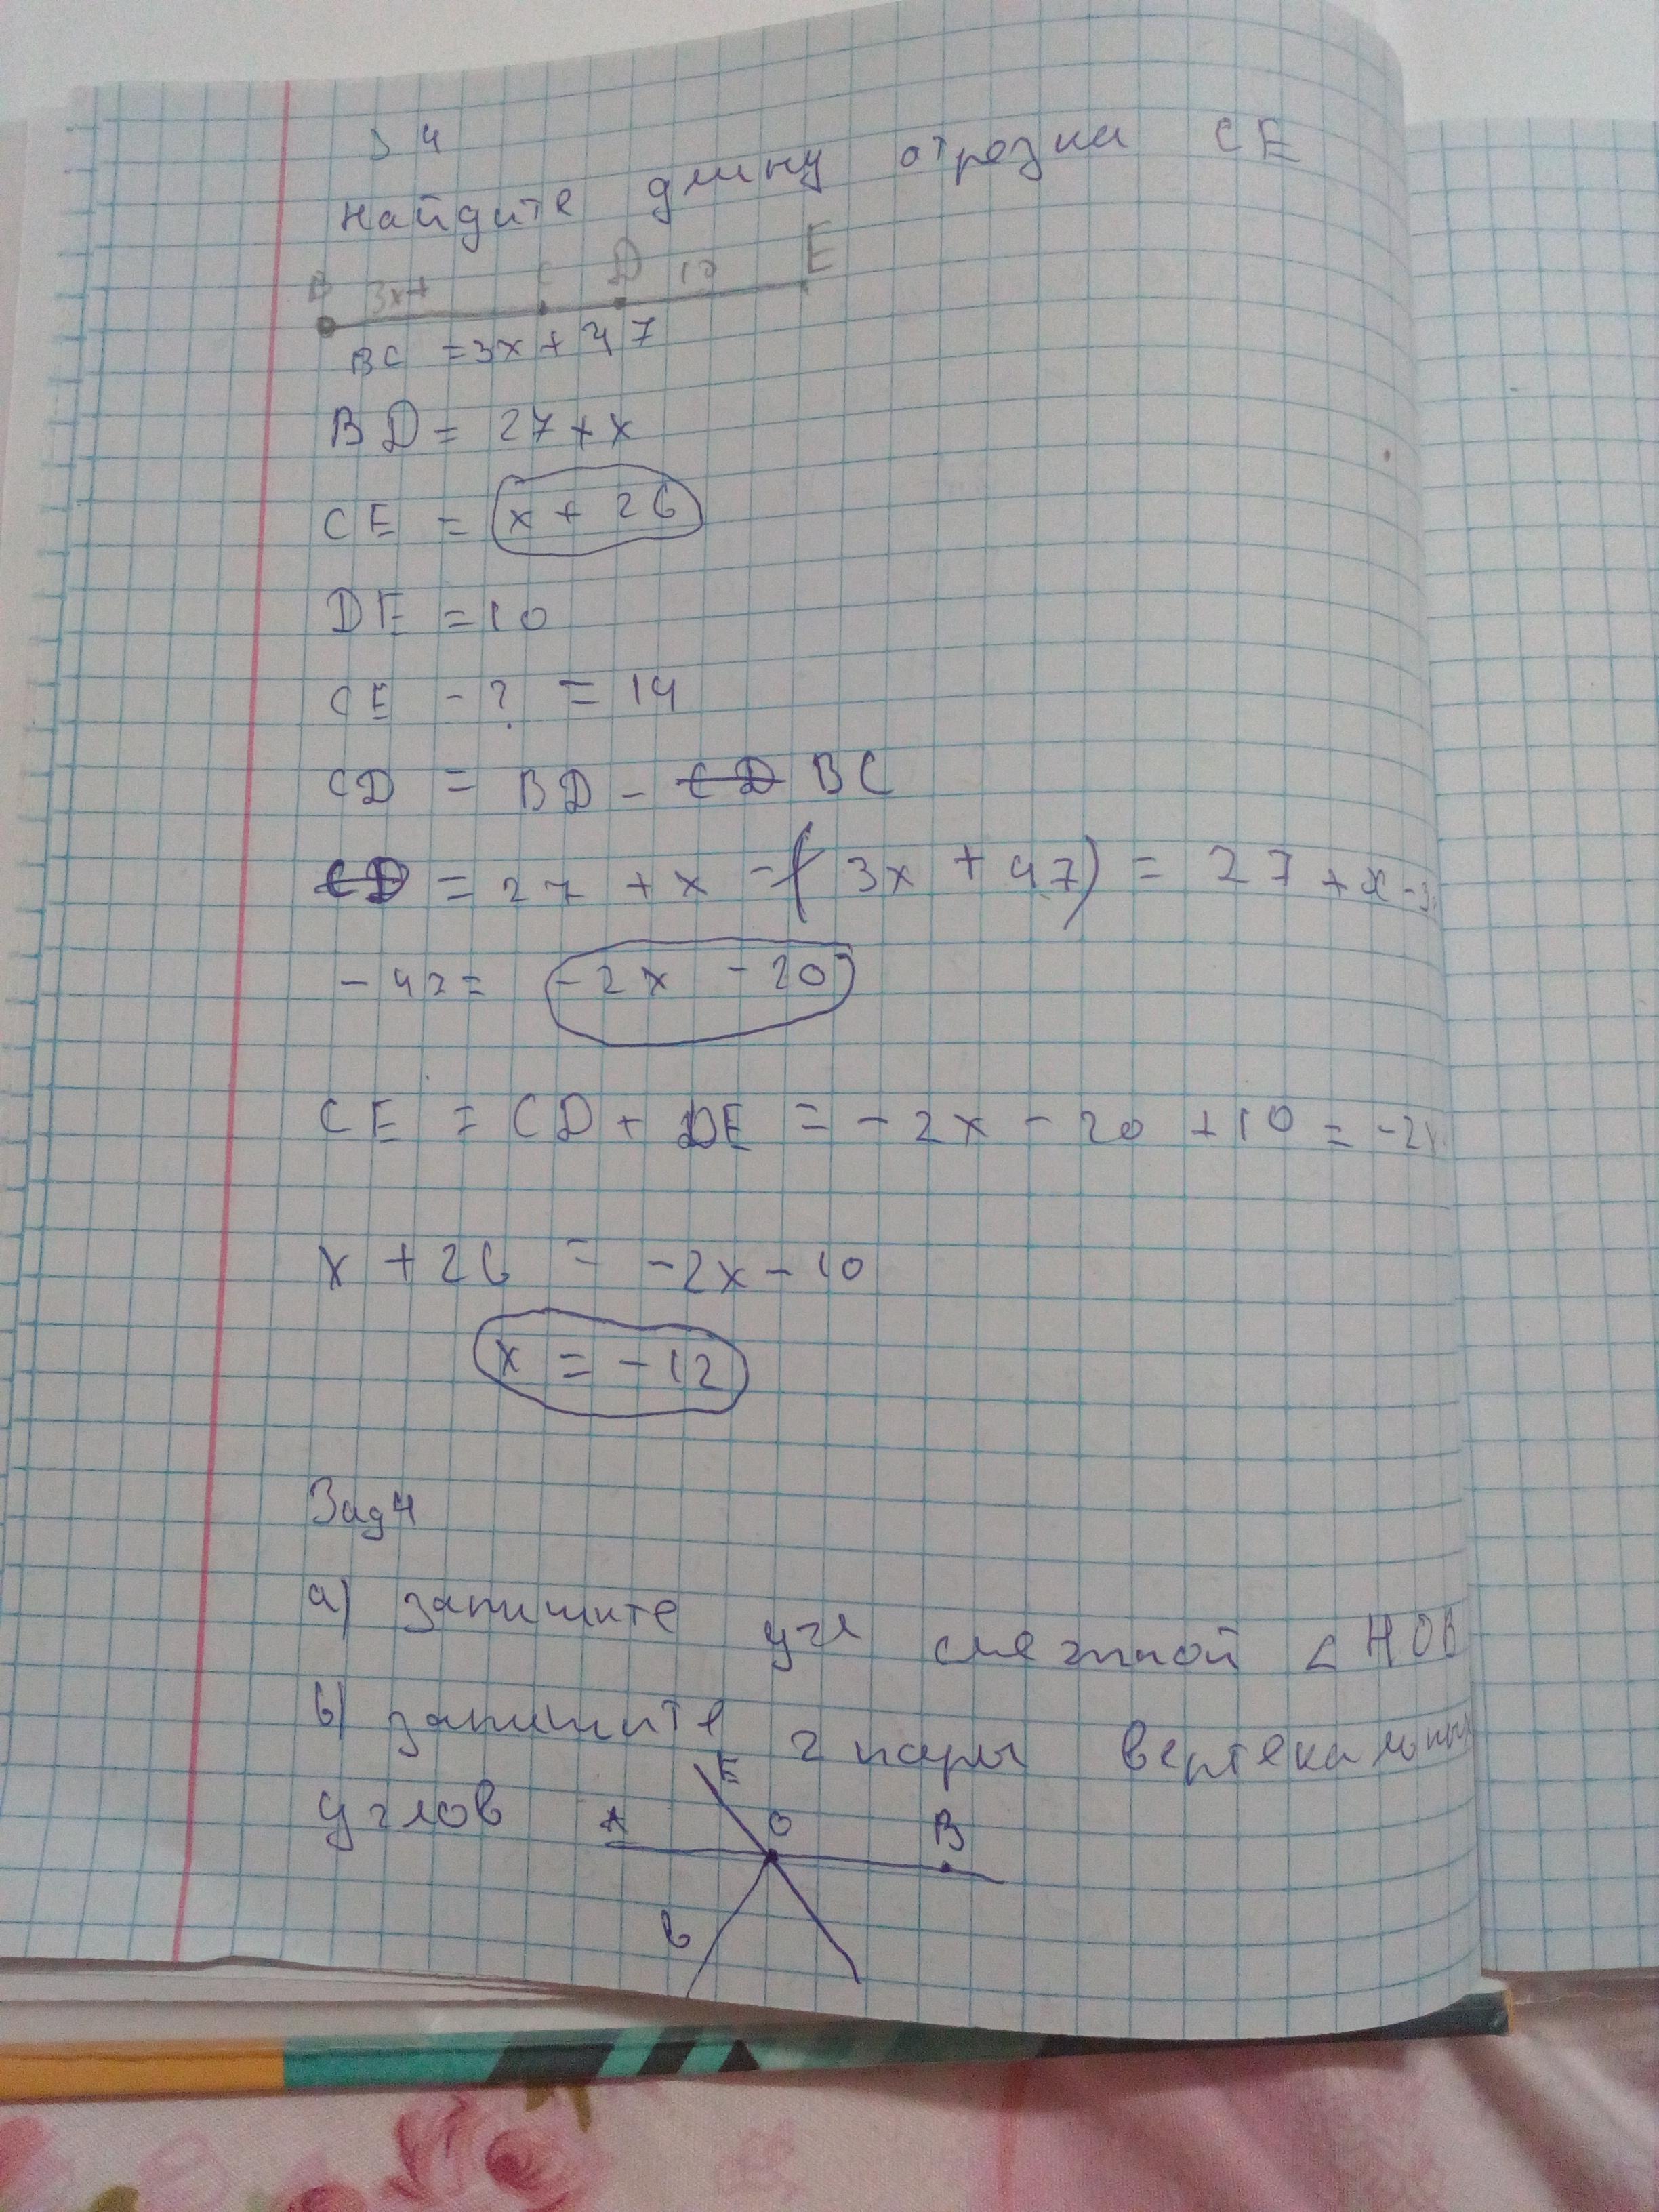 З 4
Найдите длину отрезка CE
B 3x+ C D 10 E
BC = 3x + 47
BD = 27 + x
CE = x + 26
DE = 10
CE - ? = 14
CD = BD - CD BC
CD = 27 + x - ( 3x + 47) = 27 + x - 3
- 47 = - 2x - 20
CE = CD + DE = - 2x - 20 + 10 = - 2x
x + 26 = - 2x - 10
x = - 12
Зад 4
а) запишите угл смежной ∠ HOB
b) запишите 2 пары вертекальных
углов
E
A O B
b